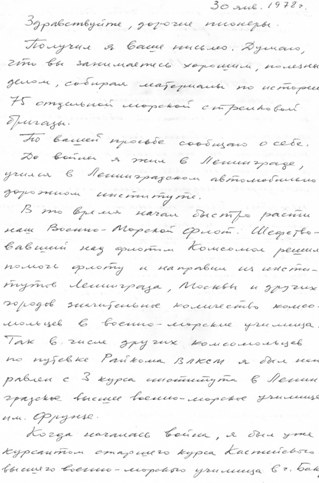 30 янв. 1978 г.
Здравствуйте, дорогие пионеры.
Получил я Ваше письмо. Думаю,
что вы занимаетесь хорошим, полезны
делом, собирая материалы по истории
75 отдельной морской стрелковой
бригады.
По вашей просьбе сообщаю о себе.
До войны я жил в Ленинграде,
учился в Ленинградском автомобильно
дорожном институте.
В то время начал быстро расти
наш Военно-Морской флот. Шефство-
вавший над флотом Комсомол решил
помочь флоту и направил из инсти-
тутов Ленинграда, Москвы и других
городов значительное количество комсо-
мольцев в военно-морские училища.
Так в числе других комсомольцев
по путевке Райкома ВЛКСМ я был нап
равлен с 3 курса института в Ленин
градское высшее военно-морское училище
им. Фрунзе.
Когда началась война, я был уже
курсантом старшего курса Каспийского
высшего военно-морского училища в г. Бак